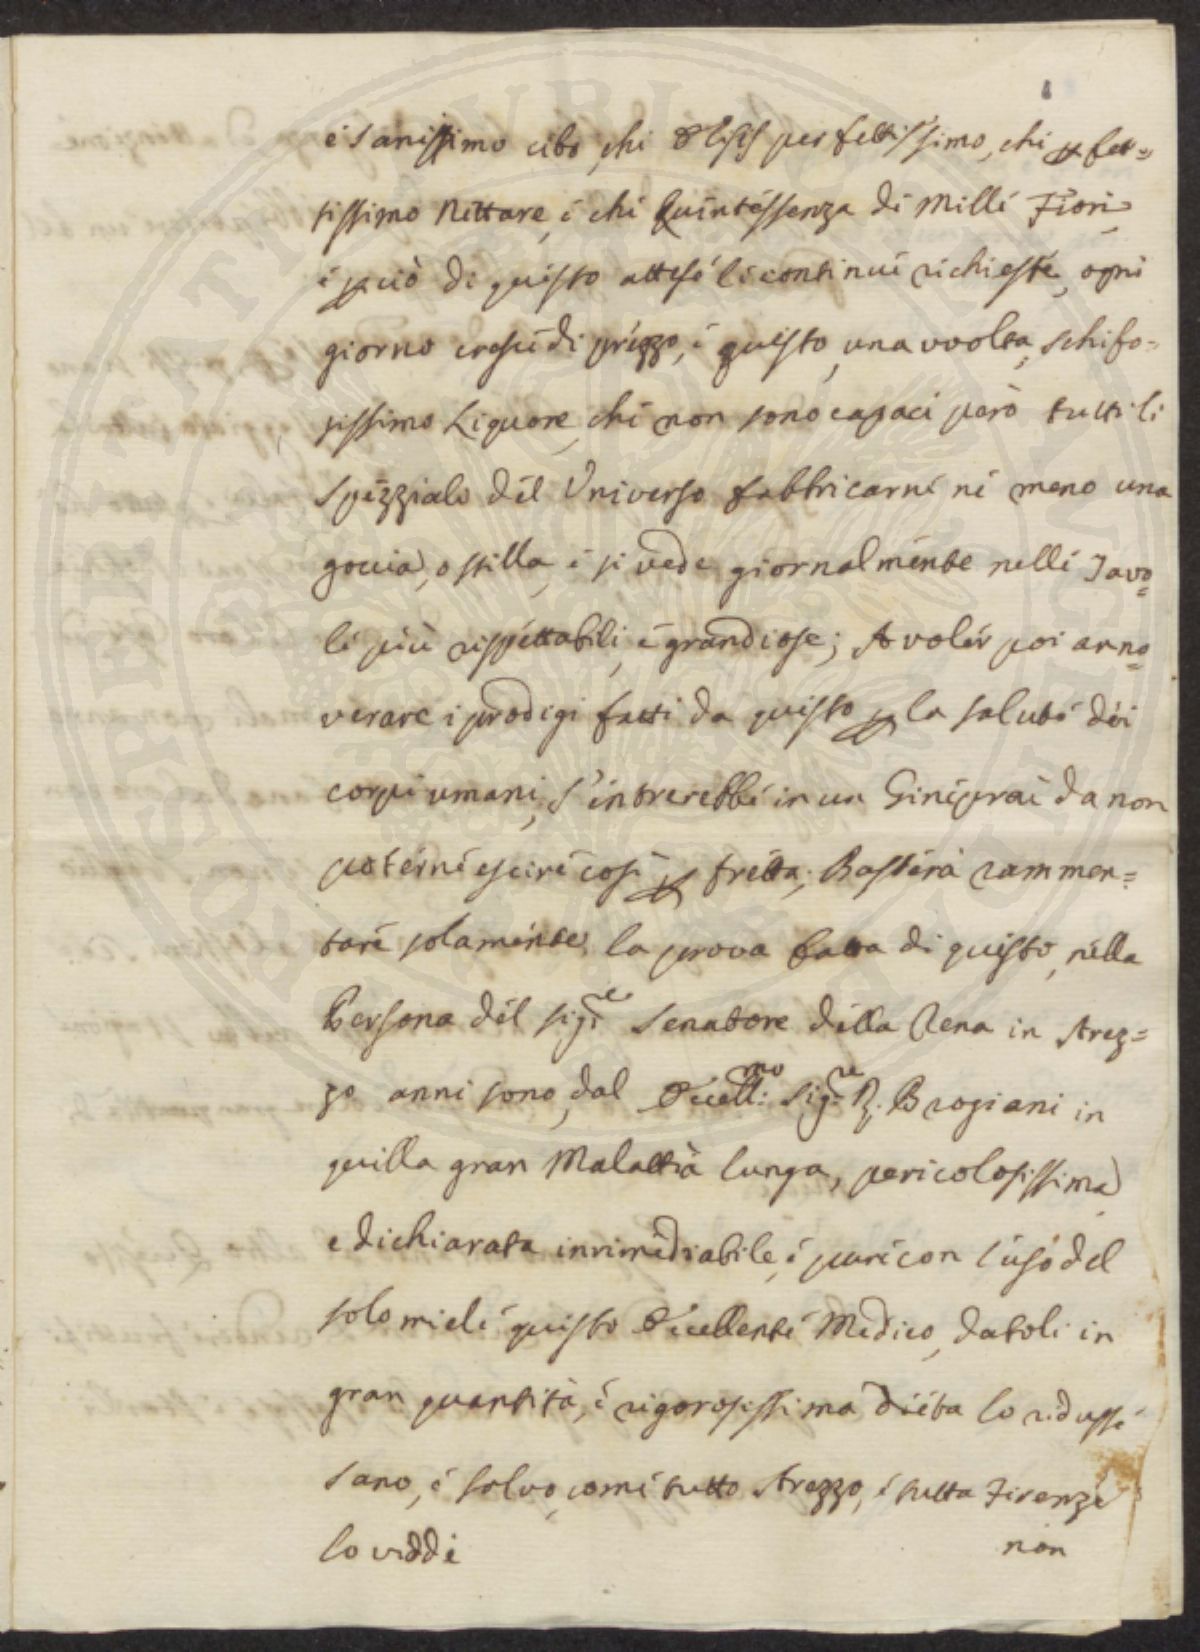 e sanissimo cibo, chi Elisir perfettissimo, chi perfet=
tissimo Nettare, e chi Quintessenza di Mille Fiori
e perciò di questo attese le continue richieste, ogni
giorno cresce di prezzo, e questo, una voolta, schifo=
sissimo Liquore, che non sono capaci però tutti li
Spezziali del Universo fabbricarne ne meno una
goccia, o stilla, e si vede giornalmente nelle Tavo=
le più rispettabili, e grandiose; A voler poi anno=
verare i prodigi fatti da questo per la salute dei
corpi umani, s'intrerebbe in un Gineprai da non
poterne escire così per fretta; Basterà rammen=
tare solamente la prova fatta di questo, nella
Persona del Sig:re Senatore della Rena in Arez=
zo anni sono, dal Eccell:mo Sig:re D. Brogiani in
quella gran Malattia lunga, pericolosissima
e dichiarata inrimediabile, e pure con l'uso del
solo miele questo Eccellente Medico, datoli in
gran quantità, e rigorosissima dieta lo ridusse
sano, e salvo, come tutto Arezzo, e tutta Firenze
lo vidde
non